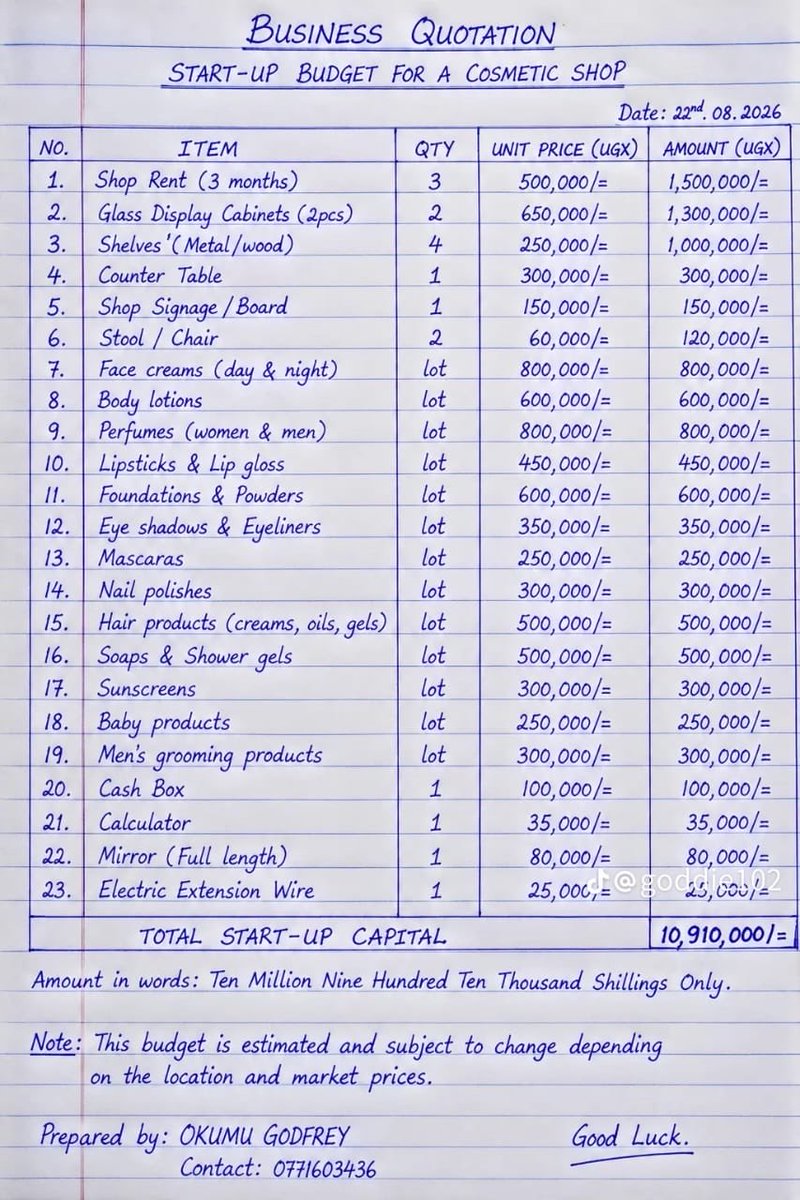 BUSINESS QUOTATION
START-UP BUDGET FOR A COSMETIC SHOP
Date: 22nd. 08. 2026
NO. ITEM QTY UNIT PRICE (UGX) AMOUNT (UGX)
1. Shop Rent (3 months) 3 500,000/= 1,500,000/=
2. Glass Display Cabinets (2pcs) 2 650,000/= 1,300,000/=
3. Shelves '(Metal/wood) 4 250,000/= 1,000,000/=
4. Counter Table 1 300,000/= 300,000/=
5. Shop Signage / Board 1 150,000/= 150,000/=
6. Stool / Chair 2 60,000/= 120,000/=
7. Face creams (day & night) lot 800,000/= 800,000/=
8. Body lotions lot 600,000/= 600,000/=
9. Perfumes (women & men) lot 800,000/= 800,000/=
10. Lipsticks & Lip gloss lot 450,000/= 450,000/=
11. Foundations & Powders lot 600,000/= 600,000/=
12. Eye shadows & Eyeliners lot 350,000/= 350,000/=
13. Mascaras lot 250,000/= 250,000/=
14. Nail polishes lot 300,000/= 300,000/=
15. Hair products (creams, oils, gels) lot 500,000/= 500,000/=
16. Soaps & Shower gels lot 500,000/= 500,000/=
17. Sunscreens lot 300,000/= 300,000/=
18. Baby products lot 250,000/= 250,000/=
19. Men's grooming products lot 300,000/= 300,000/=
20. Cash Box 1 100,000/= 100,000/=
21. Calculator 1 35,000/= 35,000/=
22. Mirror (Full length) 1 80,000/= 80,000/=
23. Electric Extension Wire 1 25,000/= 25,000/=
@goddie102
TOTAL START-UP CAPITAL 10,910,000/=
Amount in words: Ten Million Nine Hundred Ten Thousand Shillings Only.
Note: This budget is estimated and subject to change depending
on the location and market prices.
Prepared by: OKUMU GODFREY Good Luck.
Contact: 0771603436